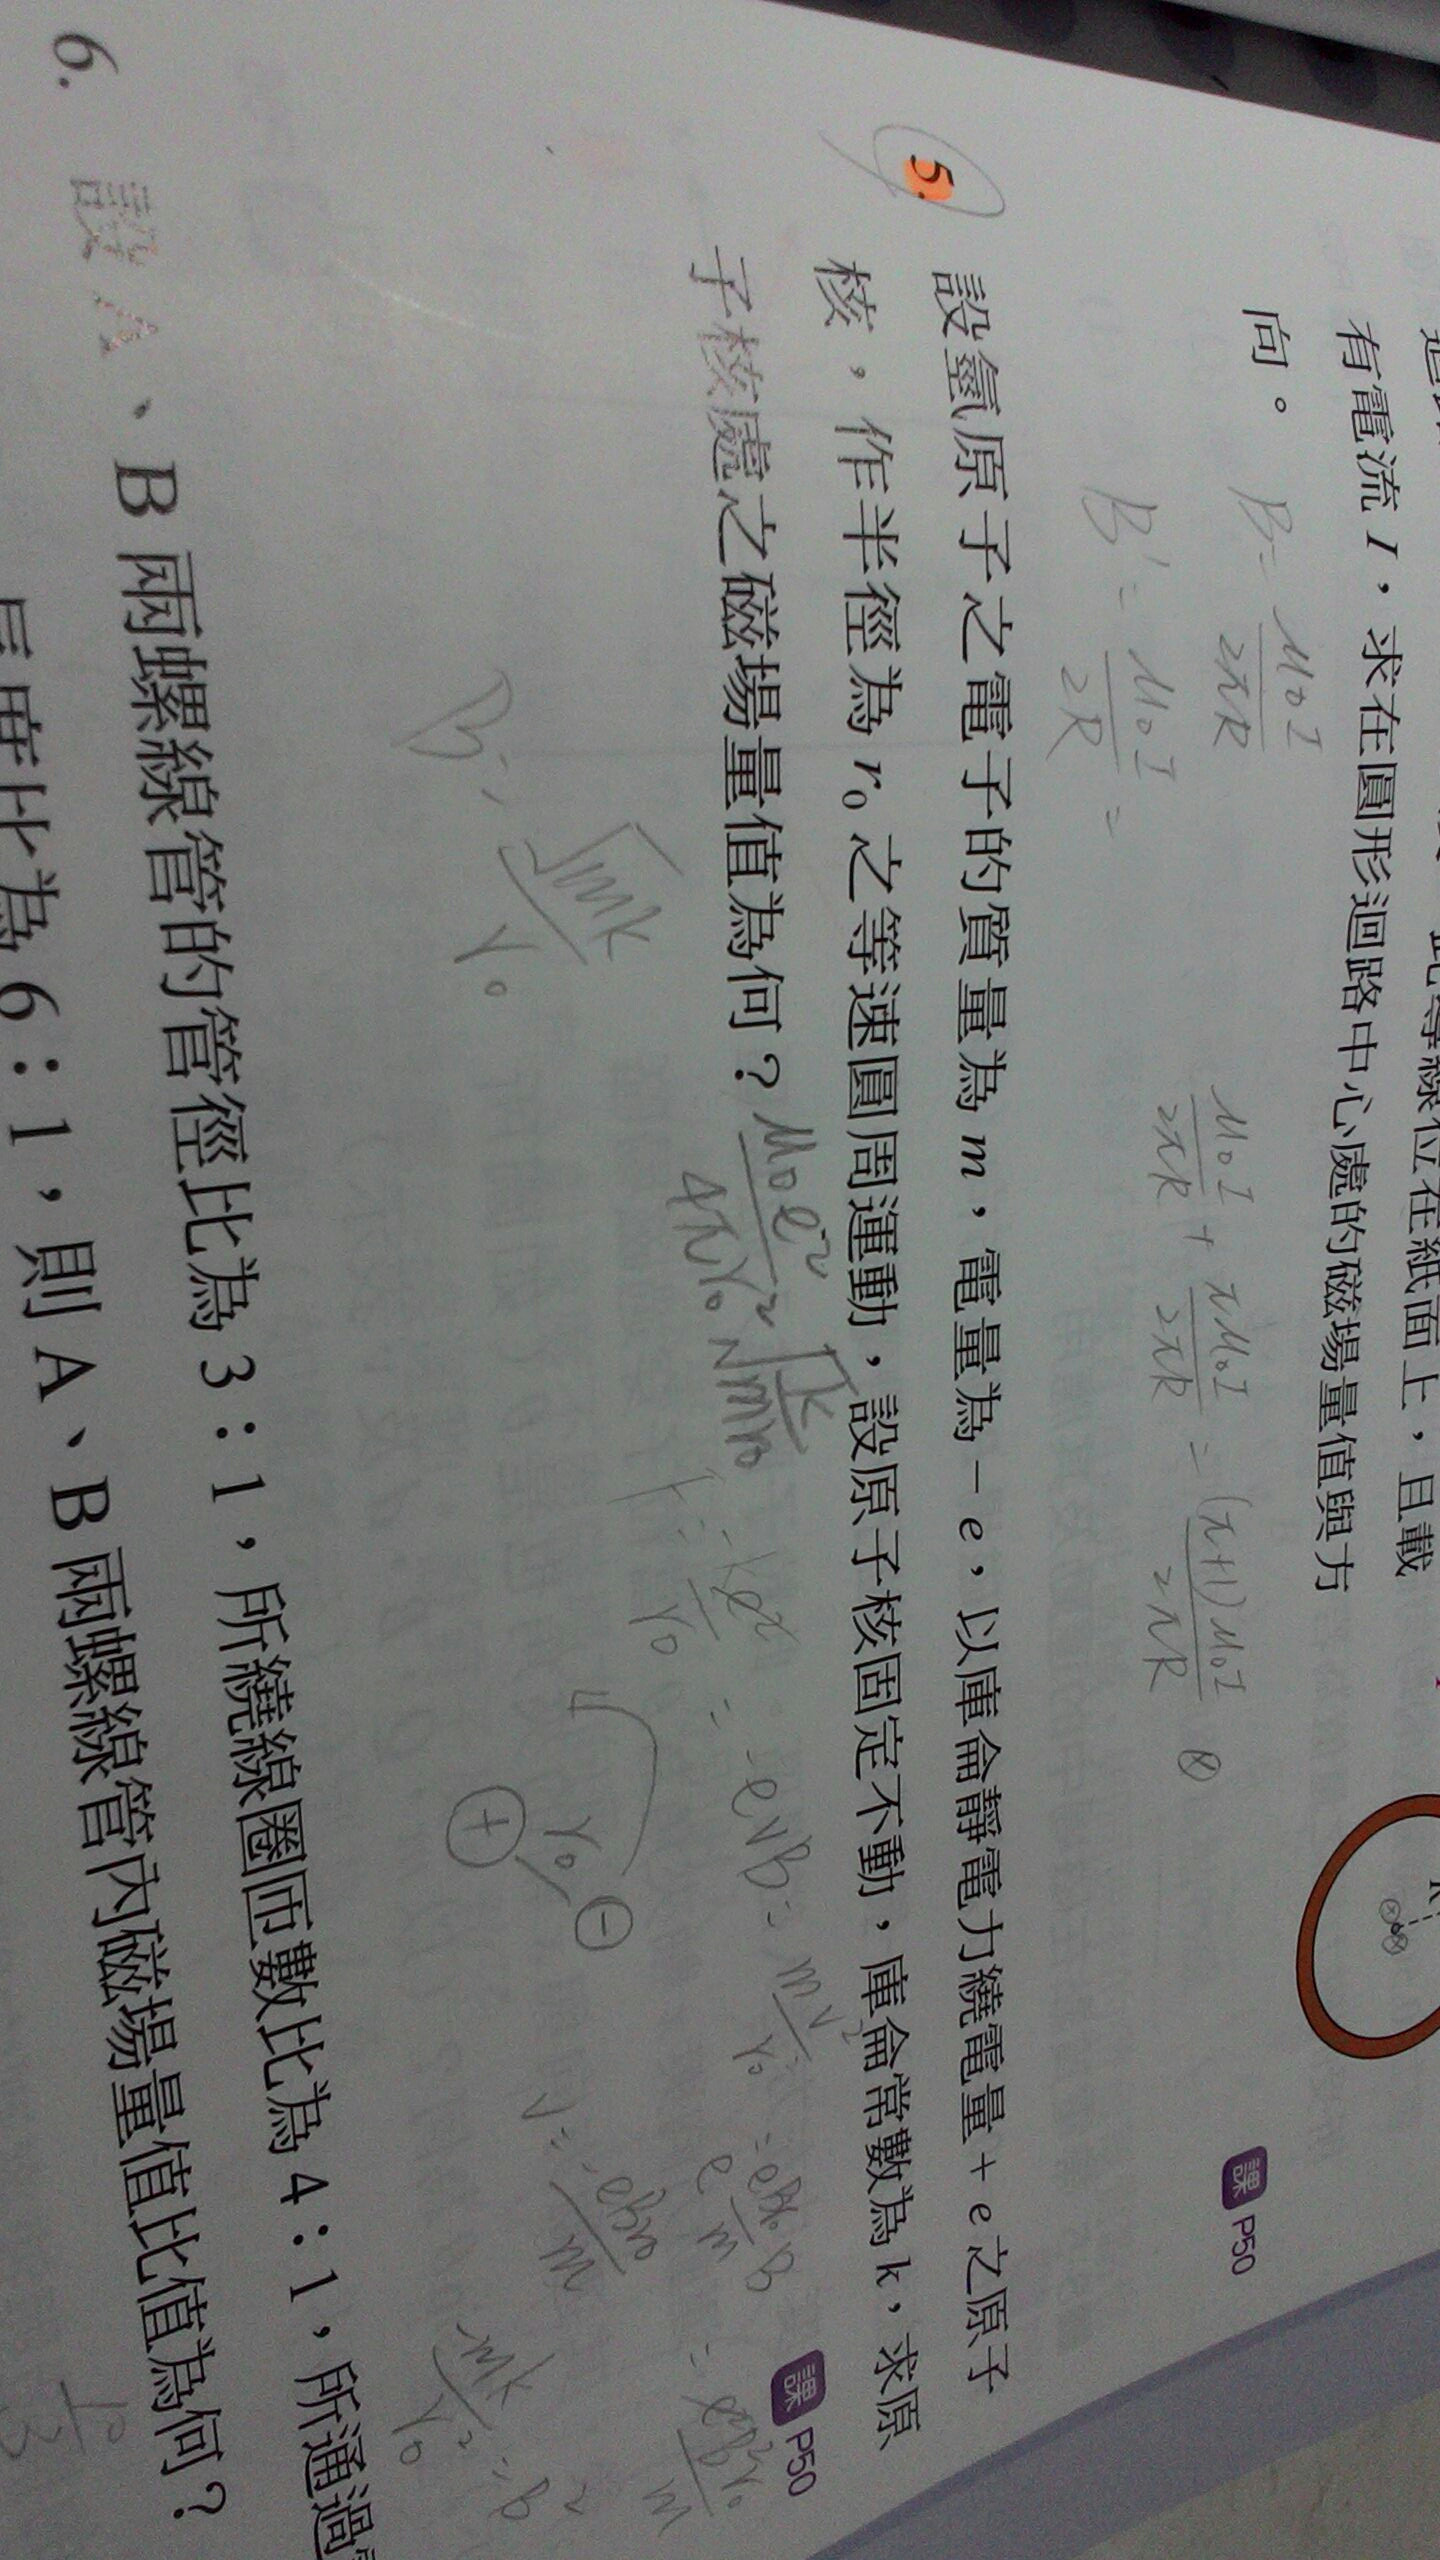 有電流 I，求在圓形迴路中心處的磁場量值與方
向。
B = μ₀I / 2πR
B' = μ₀I / 2R =
μ₀I / 2πR + πμ₀I / 2πR = (π+1)μ₀I / 2πR ⊗
課 P50
5. 設氫原子之電子的質量為 m，電量為－e，以庫侖靜電力繞電量＋e 之原子
核，作半徑為 r₀ 之等速圓周運動，設原子核固定不動，庫侖常數為 k，求原
子核處之磁場量值為何？ μ₀e² / 4πr₀² √(k / mr₀)
課 P50
= evB = mv² / r₀
B = √mk / r₀
r₀
+
−
mk / r₀² = B²
6. 設 A、B 兩螺線管的管徑比為 3：1，所繞線圈匝數比為 4：1，所通過
長度比為 6：1，則 A、B 兩螺線管內磁場量值比值為何？